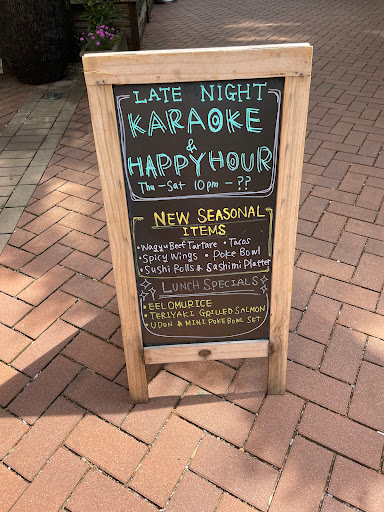 LATE NIGHT
KARAOKE
&
HAPPY HOUR
Thu - Sat 10pm - ??
NEW SEASONAL
ITEMS
• Wagyu Beef Tartare • Tacos
• Spicy Wings • Poke Bowl
• Sushi Rolls & Sashimi Platter
LUNCH SPECIALS
• EELOMURICE
• TERIYAKI GRILLED SALMON
• UDON & MINI POKE BOWL SET